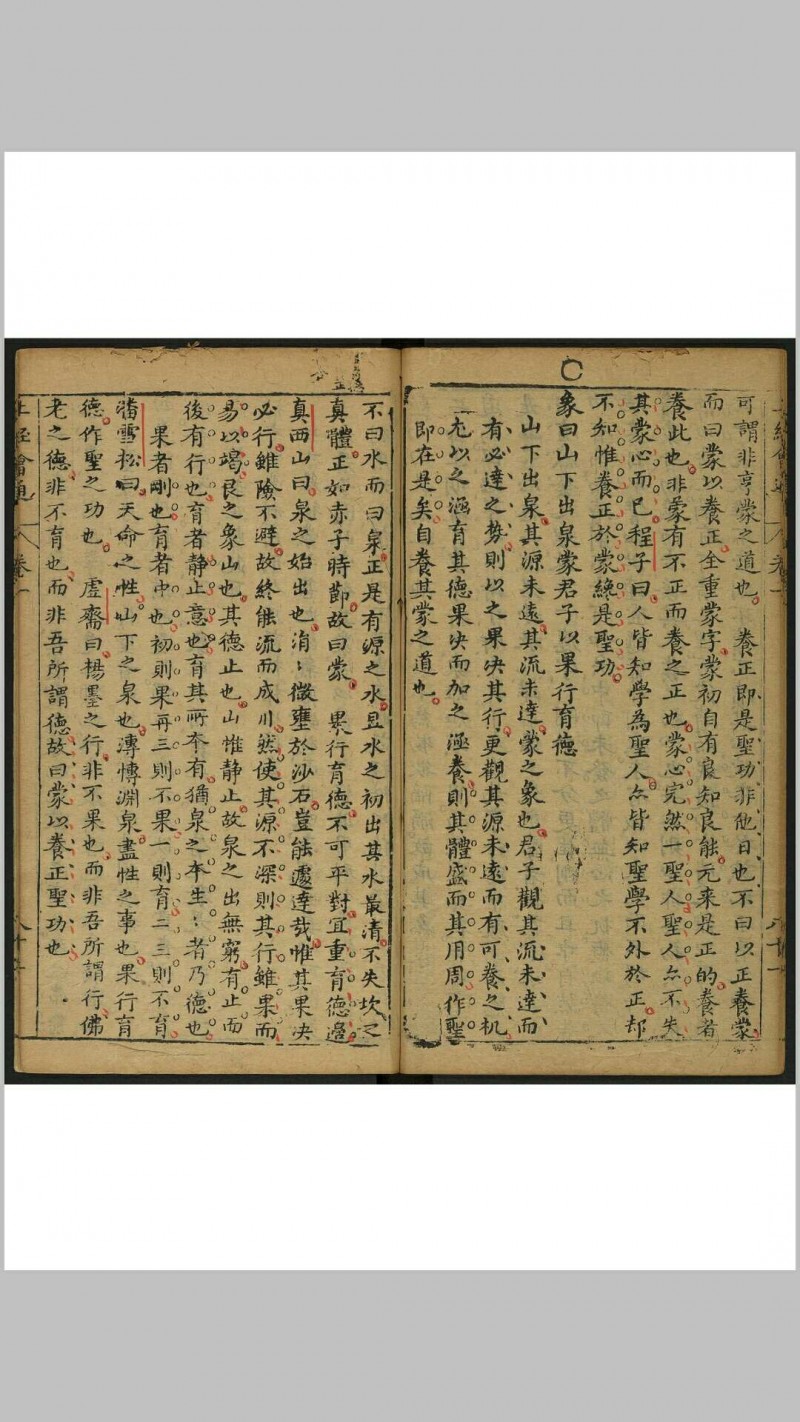 可謂非亨蒙之道也 養正即是聖功非他日也不曰以正養蒙
而曰蒙以養正全重蒙字蒙初自有良知良能元来是正的養者
養此也非蒙有不正而養之正也蒙心完然一聖人聖人亦不失
其蒙心而已程子曰人皆知學為聖人亦皆知聖學不外於正却
不知惟養正於蒙纔是聖功
象曰山下出泉蒙君子以果行育德
山下出泉其源未遠其流未達蒙之象也君子觀其流未達而
有必達之勢則以之果决其行更觀其源未遠而有可養之机
尤以之涵育其德果决而加之涵養則其體盛而其用周作聖
即在是矣自養其蒙之道也
不曰水而曰泉正是有源之水且水之初出其水最清不失坎之
真體正如赤子時節故曰蒙 果行育德不可平對宜重育德邊
真西山曰泉之始出也涓〻微壅於沙石豈能遽達哉惟其果决
必行雖險不避故終能流而成川然使其源不深則其行雖果而
易以竭艮之象山也其德止也山惟静止故泉之出無窮有止而
後有行也育者静止意也育其所夲有猶泉之本生〻者乃德也
果者剛也育者中也初則果再三則不果一則育二三則不育
潘雪松曰天命之性山下之泉也溥博淵泉盡性之事也果行育
德作聖之功也 虚齋曰楊墨之行非不果也而非吾所謂行佛
老之德非不育也而非吾所謂德故曰蒙以養正聖功也
上經會通
卷一